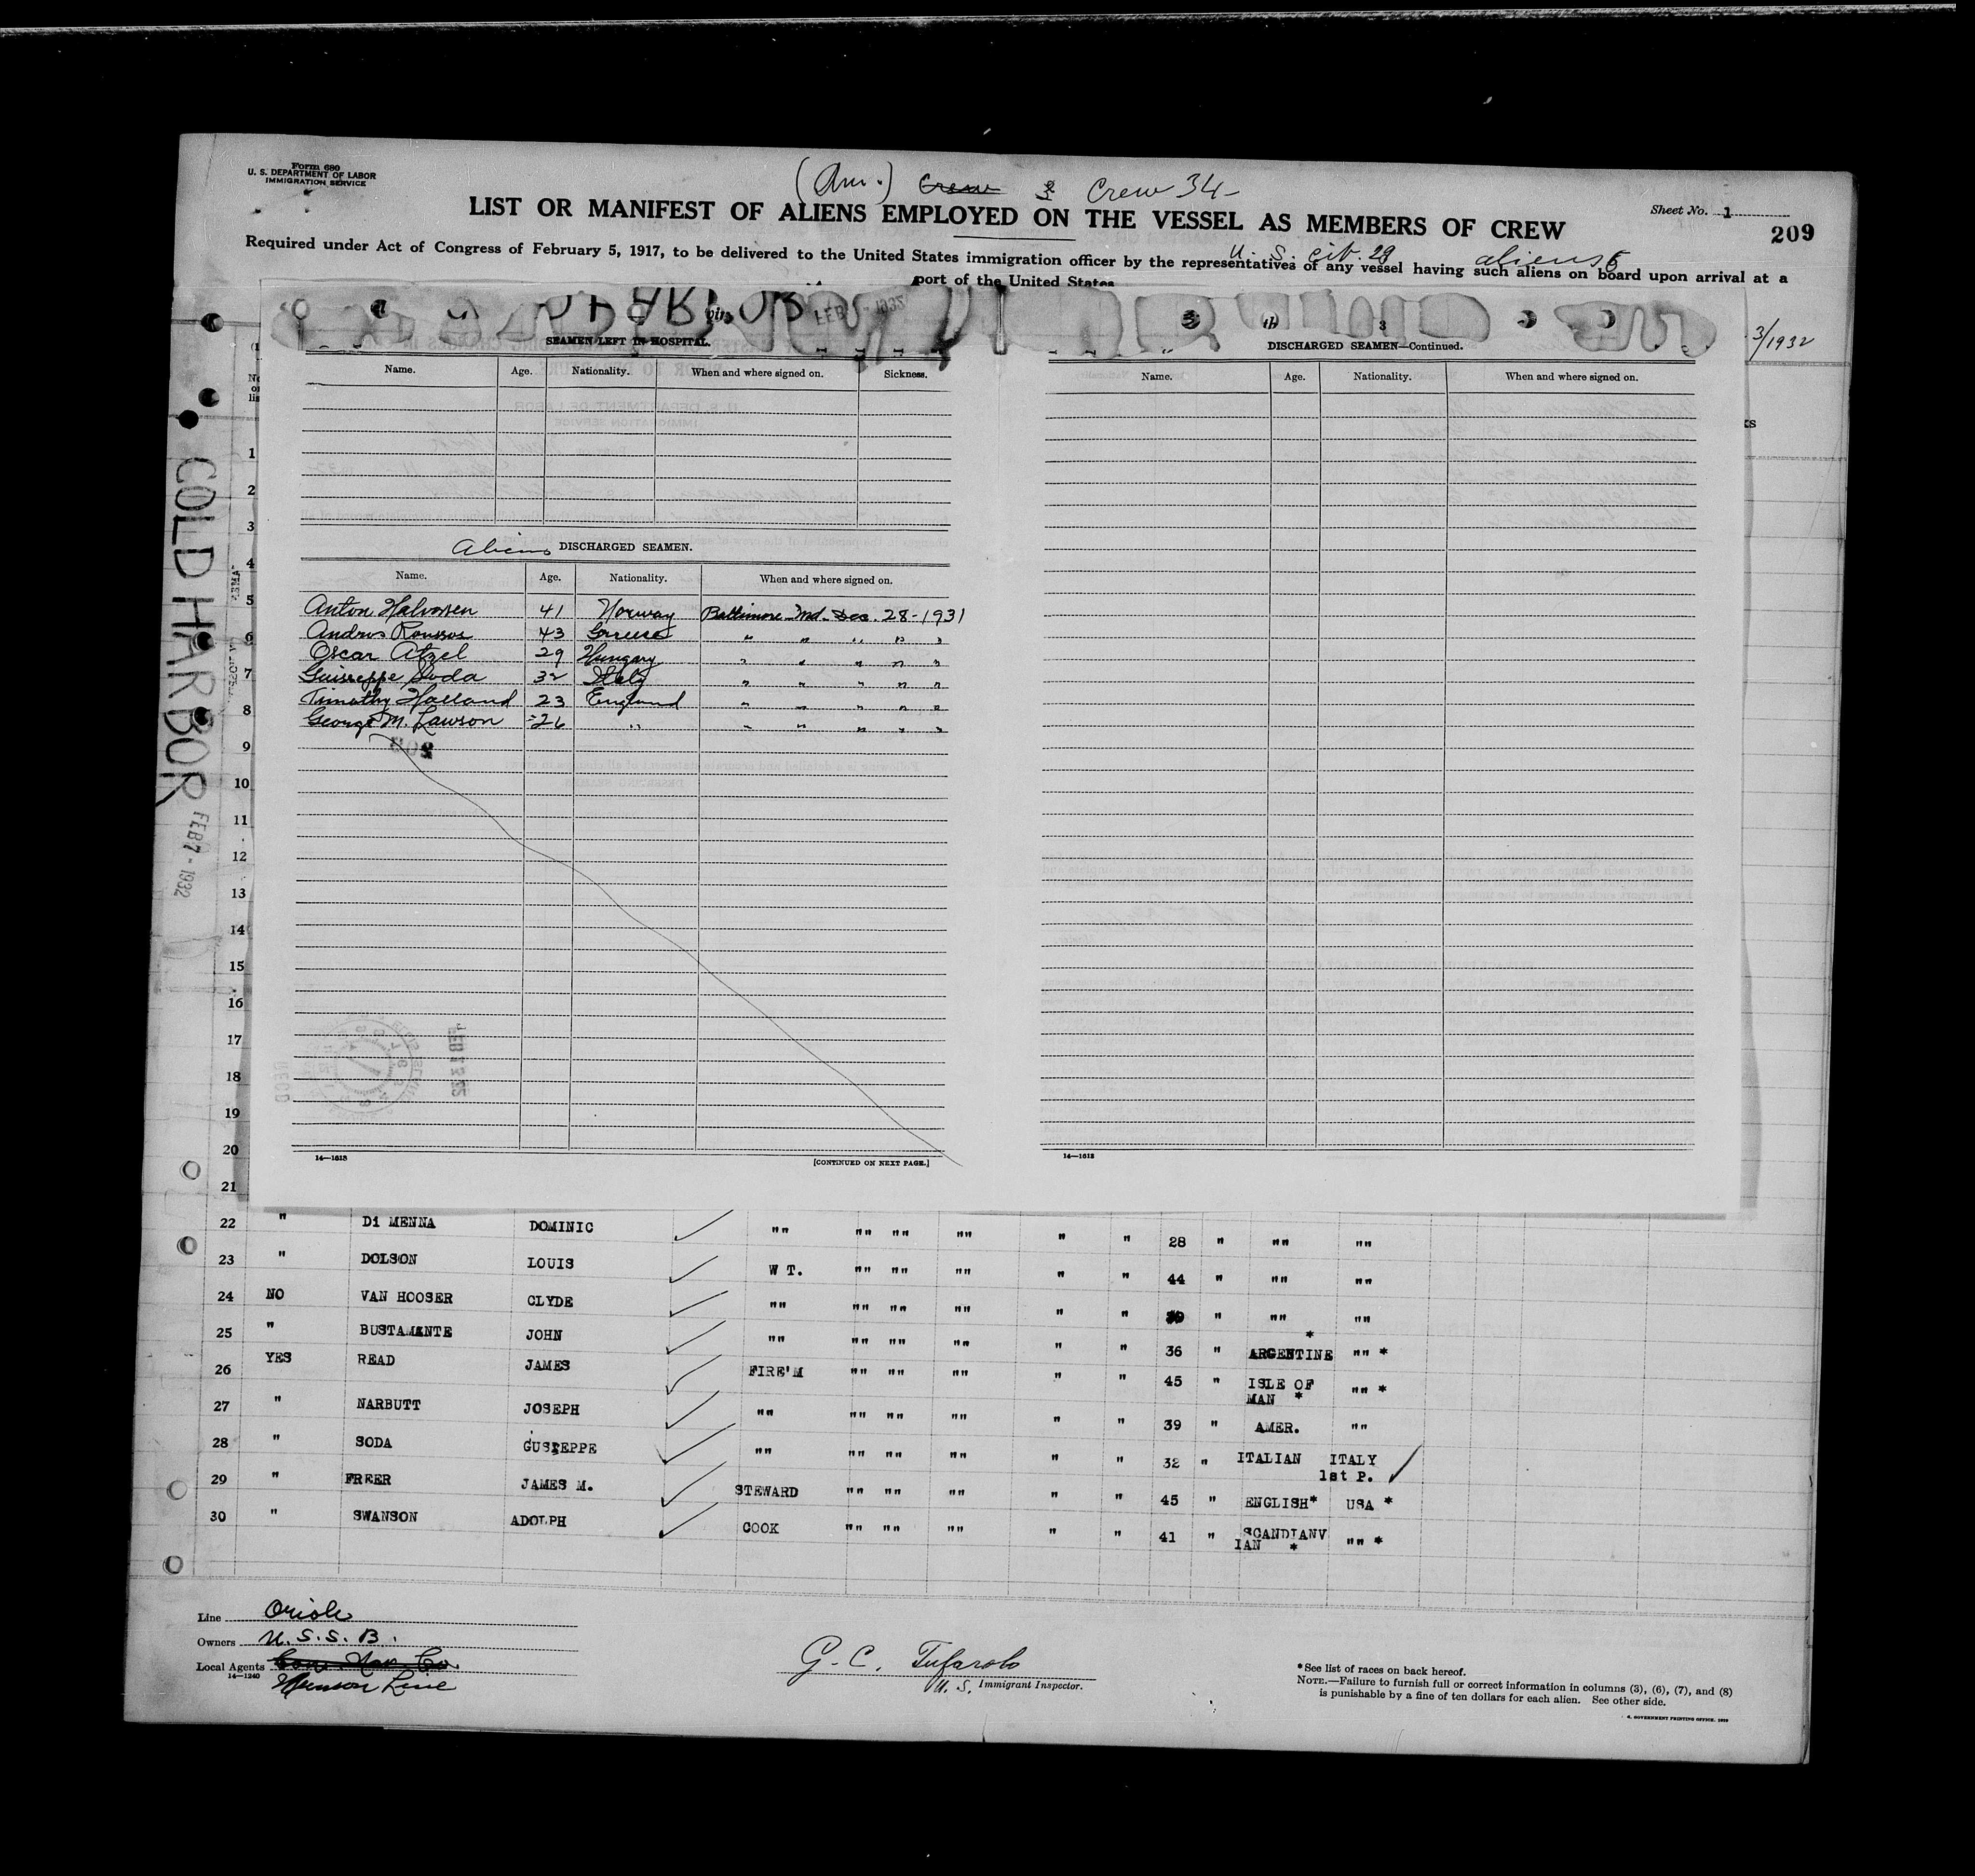 Form 680
U. S. DEPARTMENT OF LABOR
IMMIGRATION SERVICE
(Am.) Crew Crew 34
LIST OR MANIFEST OF ALIENS EMPLOYED ON THE VESSEL AS MEMBERS OF CREW
Sheet No. 1
209
U. S. cit. 29 aliens
Required under Act of Congress of February 5, 1917, to be delivered to the United States immigration officer by the representatives of any vessel having such aliens on board upon arrival at a
port of the United States
3/1932
COLD HARBOR FEB 7 - 1932
SEAMEN LEFT IN HOSPITAL.
Name. Age. Nationality. When and where signed on. Sickness.
Aliens DISCHARGED SEAMEN.
Name. Age. Nationality. When and where signed on.
Anton Halvorsen 41 Norway Baltimore Md. Dec. 28-1931
Andros Roussos 43 Greece " " " " "
Oscar Atzel 29 Hungary " " " " "
Guiseppe Soda 32 Italy " " " " "
Timothy Holland 23 England " " " " "
George M. Lawson 26 " " " " " "
14—1613 [CONTINUED ON NEXT PAGE.]
3
DISCHARGED SEAMEN—Continued.
Name. Age. Nationality. When and where signed on.
14—1613
1
2
3
4
5
6
7
8
9
10
11
12
13
14
15
16
17
18
19
20
21
22 " Di MENNA DOMINIC "" "" "" "" " " 28 " "" ""
23 " DOLSON LOUIS W T. "" "" "" " " 44 " "" ""
24 NO VAN HOOSER CLYDE "" "" "" "" " " " "" ""
25 " BUSTAMENTE JOHN "" "" "" "" " " 36 " ARGENTINE * "" *
26 YES READ JAMES FIRE'M "" "" "" " " 45 " ISLE OF MAN * "" *
27 " NARBUTT JOSEPH "" "" "" "" " " 39 " AMER. ""
28 " SODA GUSIEPPE "" "" "" "" " " 32 " ITALIAN ITALY 1st P.
29 " FREER JAMES M. STEWARD "" "" "" " " 45 " ENGLISH* USA *
30 " SWANSON ADOLPH COOK "" "" "" " " 41 " SCANDIANVIAN * "" *
Line Oriole
Owners U.S.S.B.
Local Agents
14—1240
Munson Line
G. C. Tufarolo
U. S. Immigrant Inspector.
*See list of races on back hereof.
NOTE.—Failure to furnish full or correct information in columns (3), (6), (7), and (8)
is punishable by a fine of ten dollars for each alien. See other side.